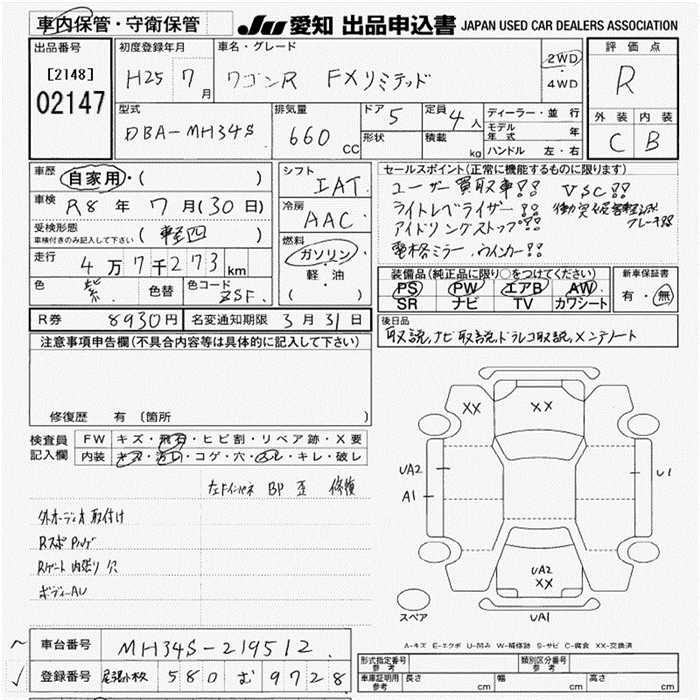 車内保管・守衛保管 JU 愛知 出品申込書 JAPAN USED CAR DEALERS ASSOCIATION
出品番号 初度登録年月 車名・グレード 評価点
[2148] H25 7月 ワゴンR FXリミテッド 2WD・4WD R
02147
型式 排気量 ドア 5 定員 4人 ディーラー・並行 外装 内装
DBA-MH34S 660cc 形状 積載 kg モデル年式 年 C B
ハンドル 左・右
車歴 自家用・( ) シフト IAT セールスポイント(正常に機能するものに限ります)
車検 R8年 7月(30日) 冷房 AAC ユーザー買取車!! VSC!!
受検形態 車検付きのみ記入して下さい (軽四) ライトレベライザー!!
燃料 ガソリン・軽・油 ( ) アイドリングストップ!!
走行 4万7千273km 電格ミラー、ウインカー!!
色 紫 色替 色コード ZSF 装備品(純正品に限り○をつけてください) 新車保証書
PS PW エアB AW 有・無
SR ナビ TV カワシート
R券 8930円 名変通知期限 3月31日 後日品
取説、ナビ取説、ドラレコ取説、メンテノート
注意事項申告欄(不具合内容等は具体的に記入して下さい)
修復歴 有 〔箇所
検査員記入欄 FW キズ・飛石・ヒビ割・リペア跡・X要
内装 キズ・汚れ・コゲ・穴・スレ・キレ・破レ
XX XX
UA2 A1 U1
左ドインパネ BP 歪 修復
外オーディオ取付け
Rスポ
Rゲート内張り穴
UA2 XX
スペア UA1
A-キズ E-エクボ U-凹み W-補修跡 S-サビ C-腐食 XX-交換済
車台番号 MH34S-219512
登録番号 尾張小牧 580 む 9728
形式指定番号 参考 類別区分番号 参考
車庫証明用 参考 長さ cm 幅 cm 高さ cm